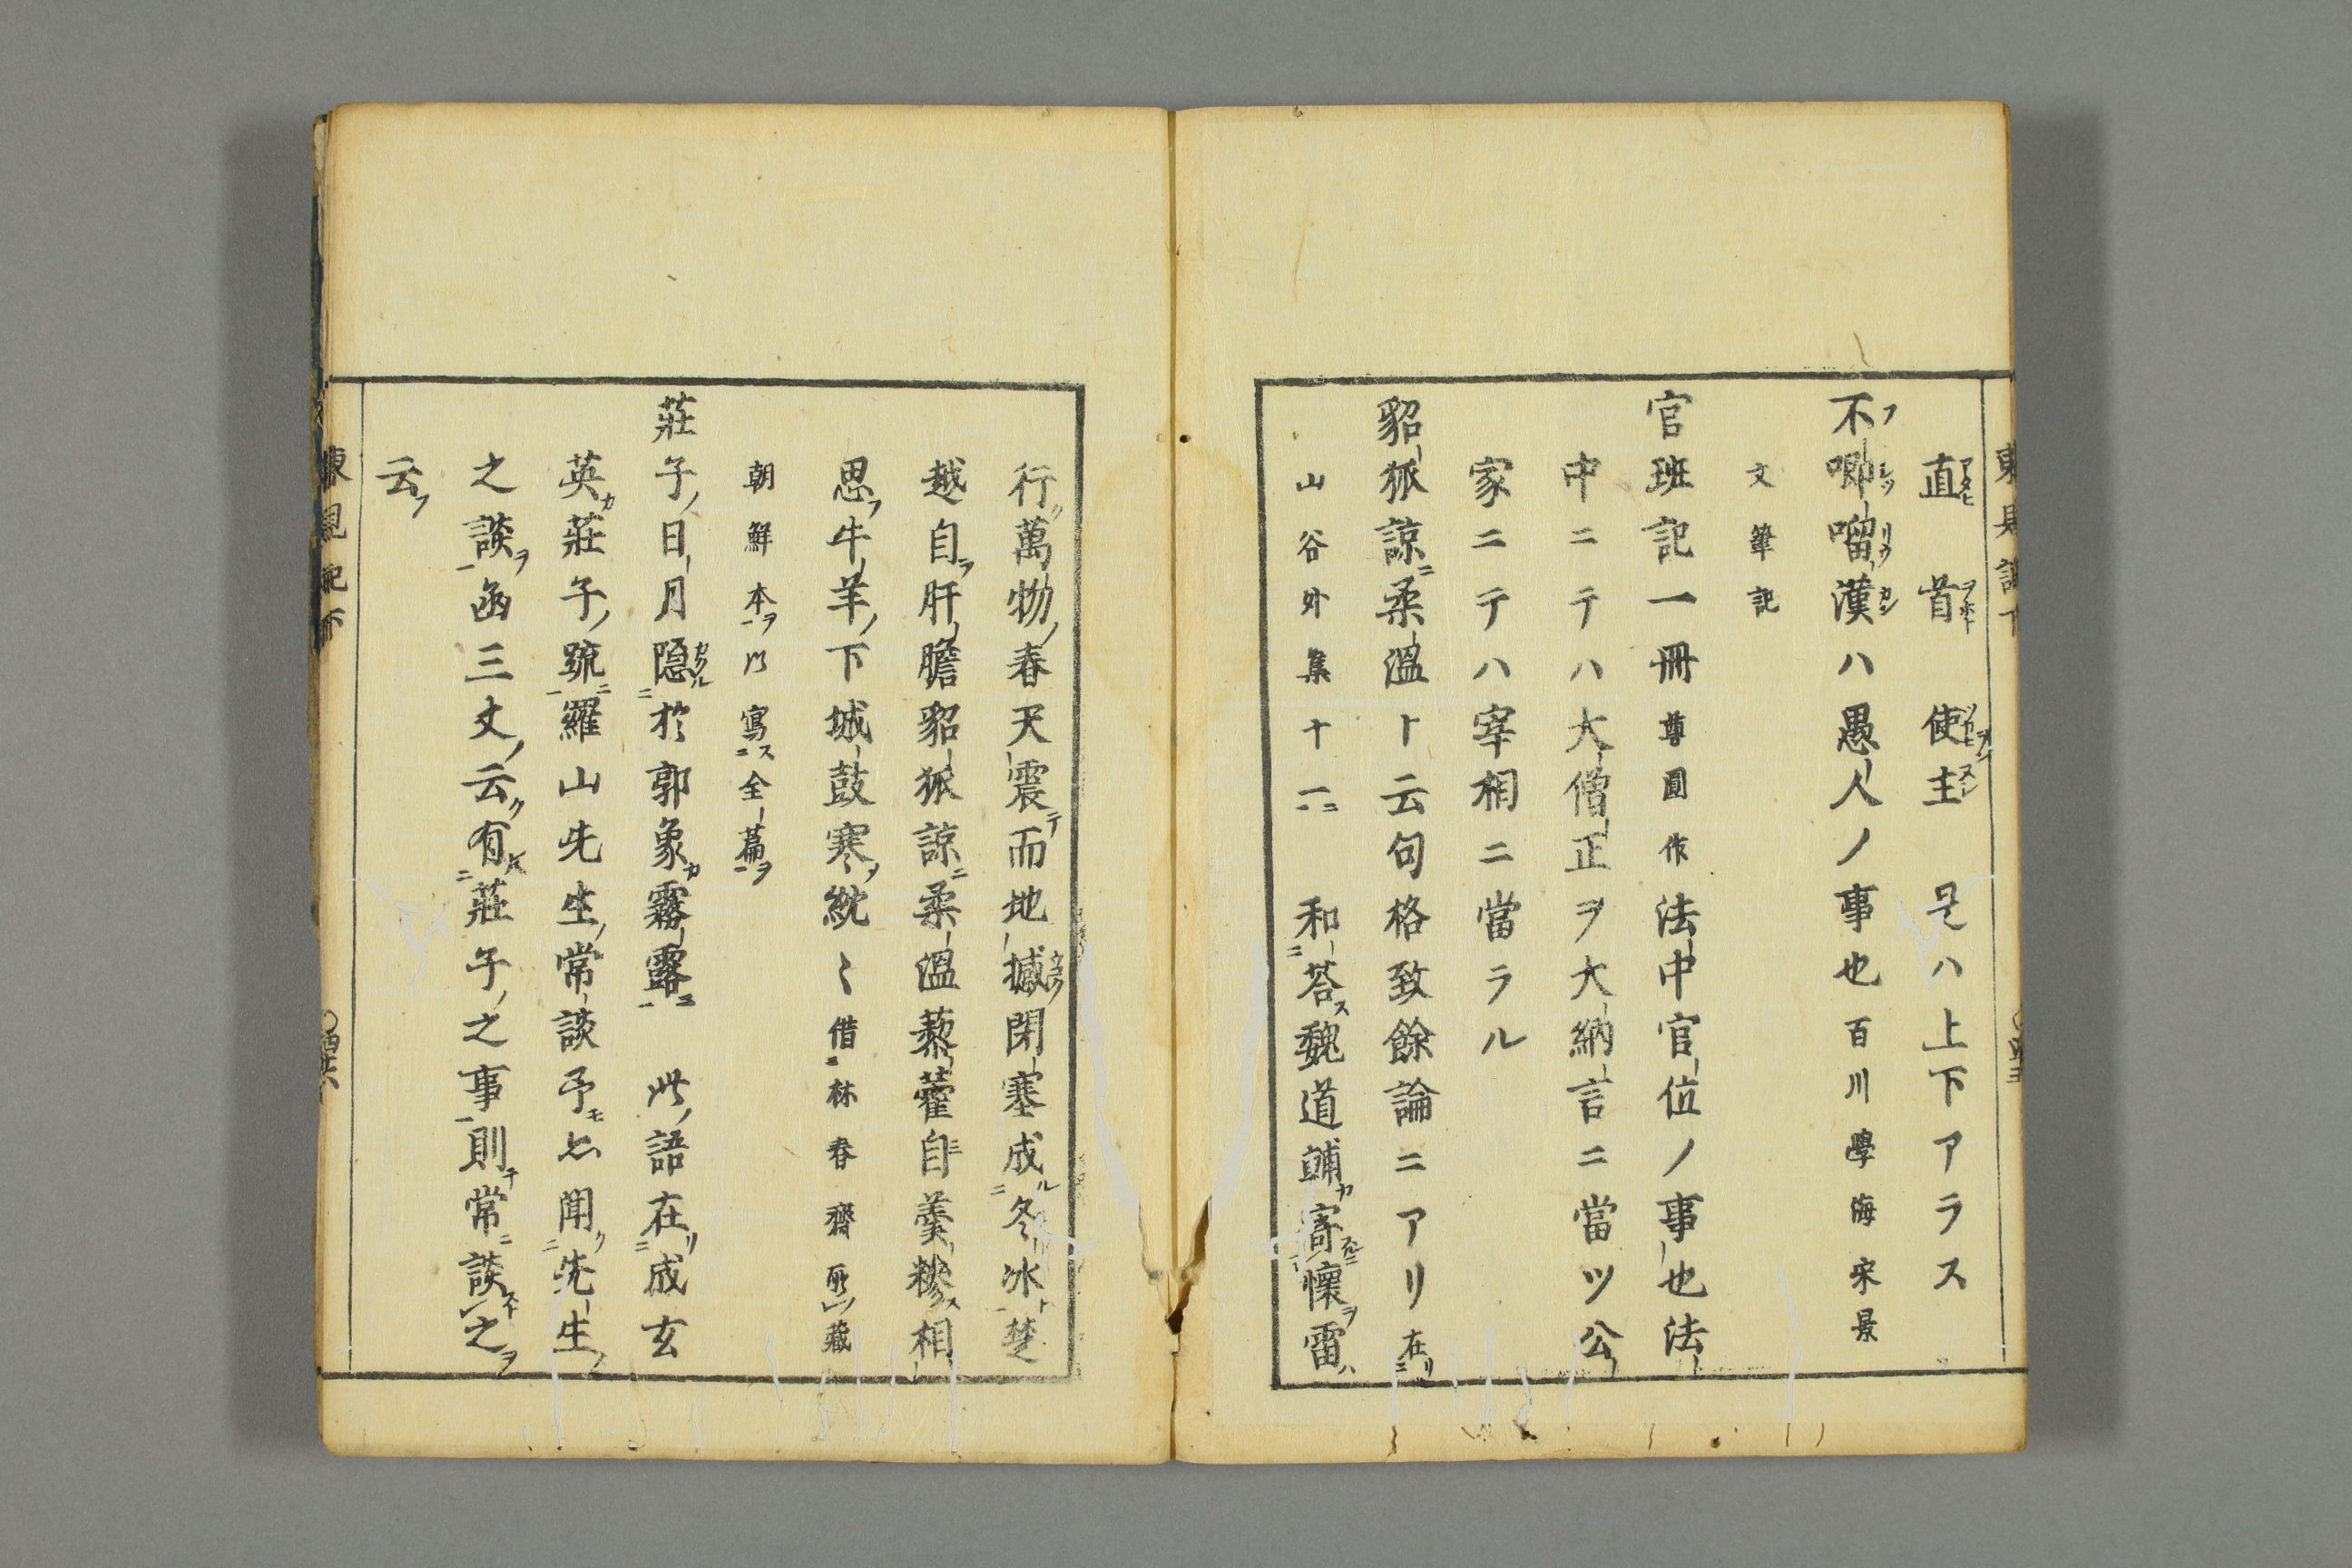 直首使主 是ハ上下アラス
不唧𠺕漢ハ愚人ノ事也百川學海宋景
文筆記
官班記一冊尊圓作法中官位ノ事也法
中ニテハ大僧正ヲ大納言ニ當ツ公
家ニテハ宰相ニ當ラル
貂狐諒柔溫ト云句格致餘論ニアリ在
山谷外集十一 和荅魏道輔寄懷雷
行萬物春天震而地撼閉塞成冬冰楚
越自肝膽貂狐諒柔溫藜藿自羹糝相
思牛羊下城鼓寒紞〻借林春齋所藏
朝鮮本以寫全篇
莊子日月隱於郭象霧露 此語在成玄
英莊子疏羅山先生常談予亦聞先生
之談函三丈云有莊子之事則常談之
云